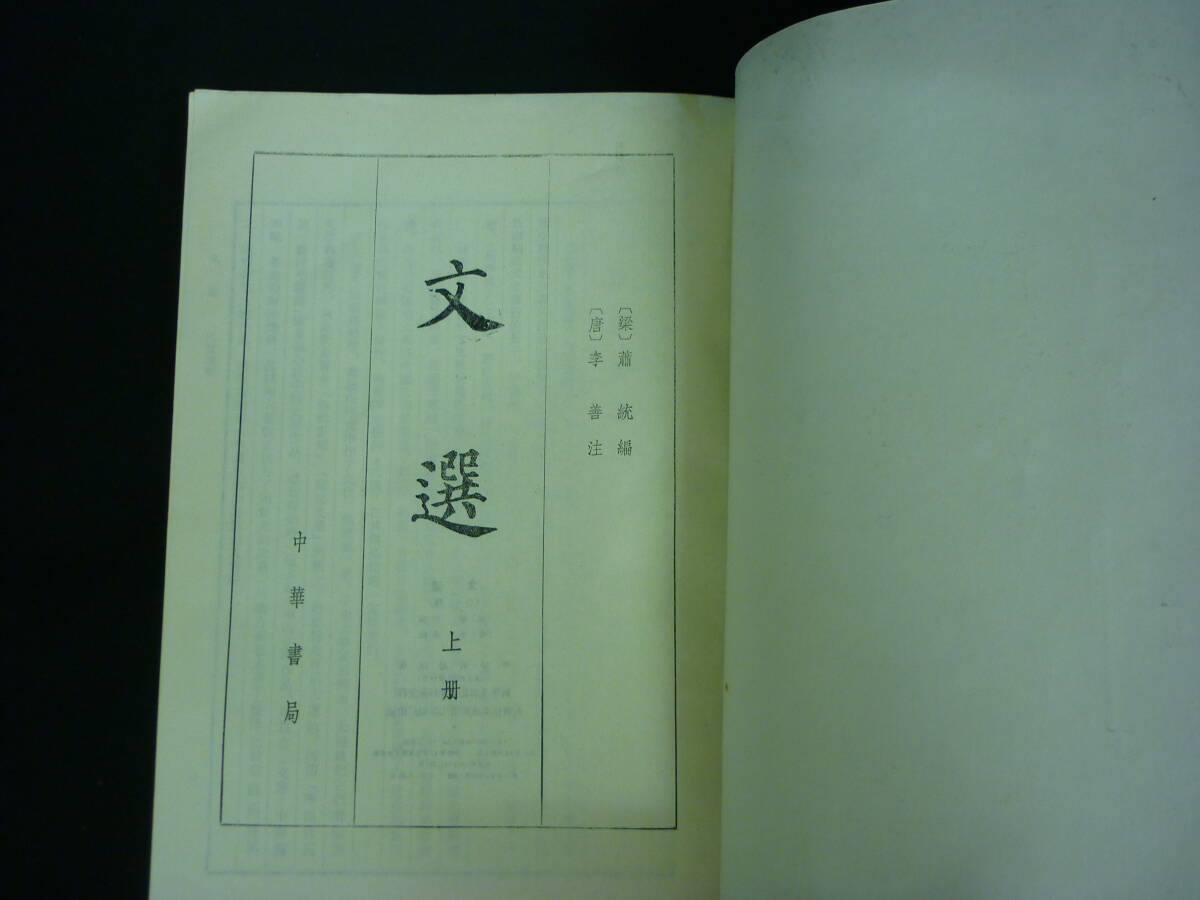 〔梁〕蕭統編
〔唐〕李善注
文選
上册
中華書局